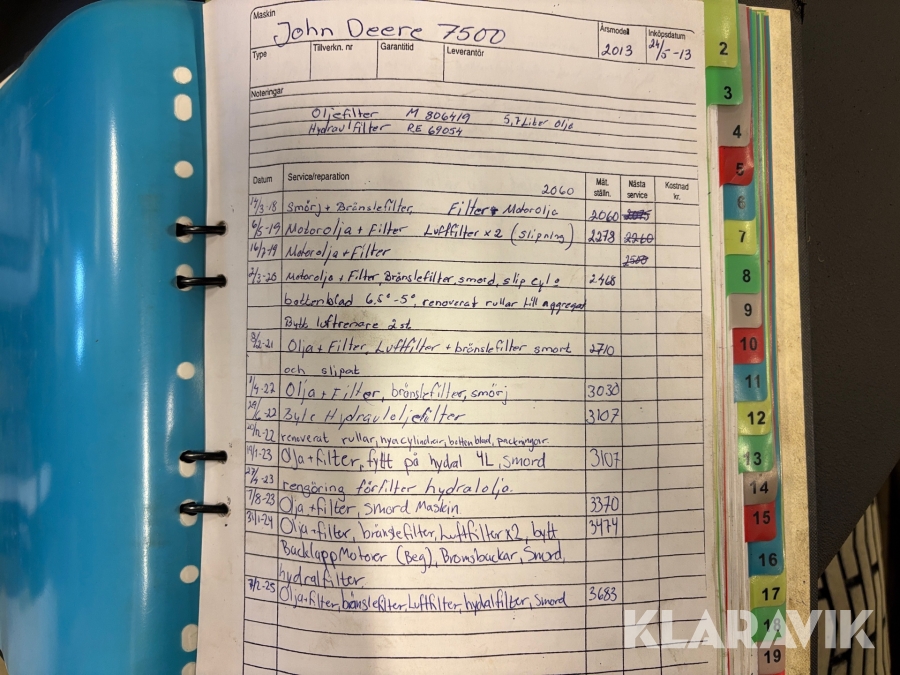 Maskin
John Deere 7500
Årsmodell
2013
Inköpsdatum
24/5-13
Type
Tillverkn. nr
Garantitid
Leverantör
Noteringar
Oljefilter M 806419 5,7 Liter Olja
Hydraulfilter RE 69054
Datum Service/reparation Mät. ställn. Nästa service Kostnad kr.
2060
14/3-18 Smörj + Bränslefilter, Filter + Motorolja 2060
6/5-19 Motorolja + Filter Luftfilter x 2 (Slipning) 2278 2260
16/7-19 Motorolja + Filter 2500
2/3-20 Motorolja + Filter, Bränslefilter, smord, slip cyl o 2468
bottenblad 6,5°-5°, renoverat rullar till aggregat
Bytt luftrenare 2 st
2-21 Olja + Filter, Luftfilter + bränslefilter smort 2710
och slipat
1/4-22 Olja + Filter, bränslefilter, smörj 3030
Byte Hydrauloljefilter 3107
renoverat rullar, nya cylindrar, bottenblad, packningar.
19/1-23 Olja + filter, fyllt på hydral 4L, smord 3107
rengöring förfilter hydralolja.
7/8-23 Olja + filter, smord Maskin 3370
31/1-24 Olja + filter, bränslefilter, Luftfilter x2, bytt 3474
BacklappMotorer (Beg), Bromsbackar, Smord,
hydralfilter
7/2-25 Olja + filter, bränslefilter, Luftfilter, hydralfilter, smord 3683
2
3
4
5
6
7
8
9
10
11
12
13
14
15
16
17
18
19
KLARAVIK